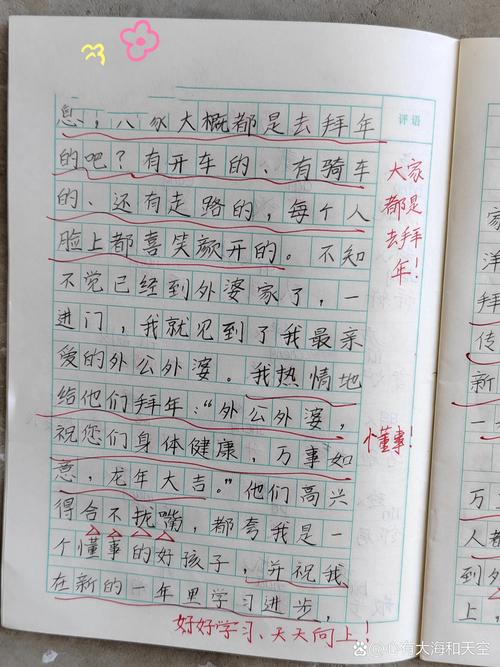 息，人家大概都是去拜年
的吧？有开车的、有骑车
的、还有走路的，每个人
脸上都喜笑颜开的。不知
不觉已经到外婆家了，一
进门，我就见到了我最亲
爱的外公外婆。我热情地
给他们拜年：“外公外婆，
祝您们身体健康，万事如
意，龙年大吉。”他们高兴
得合不拢嘴，都夸我是一
个懂事的好孩子，并祝我
在新的一年里学习进步，
好好学习、天天向上！
评语
大家
都是
去拜
年！
懂事！
洋
拜
传
新
一
万
人都
到外
上，
@心有大海和天空